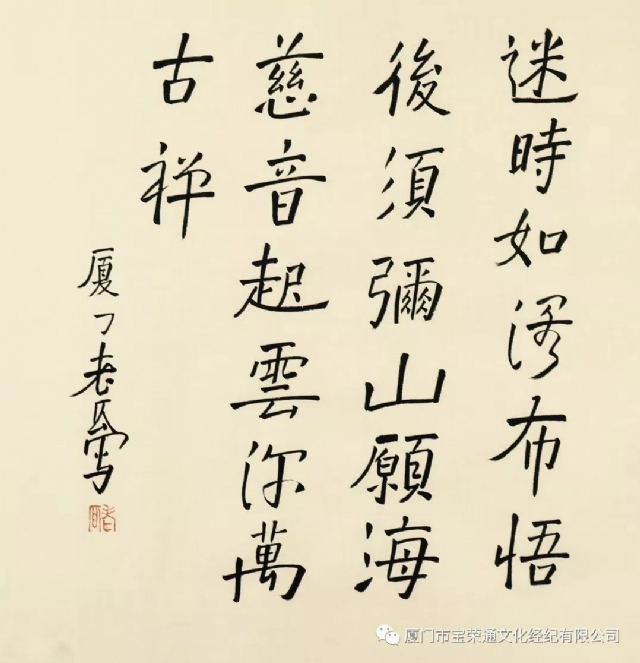 迷時如布悟
後須彌山願海
慈音起雲沵萬
古禅
厦门老
厦门市宝荣通文化经纪有限公司